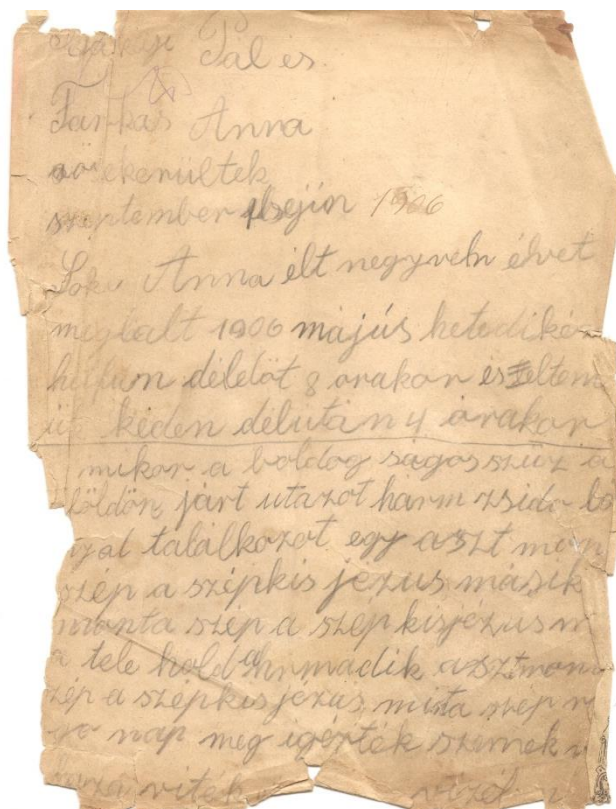 Pál és
Farkas Anna
össekerültek
szeptember elsején 1906
Anna élt negyveln élvet
meghalt 1906 május hetedikén
hétfün délelöt 8 orakor és eltem
kéden délután 4 orakor
mikor a boldog ságos szüz a
földön járt utazot hárm zsido
találkozot egy aszt mon
szép a szépkis jezus másik
monta szép a szép kisjézus m
a tele hold a hrmadik asztmon
szép a szépkis jezus minta szep r
nap meg igérték szemek
viték vizet